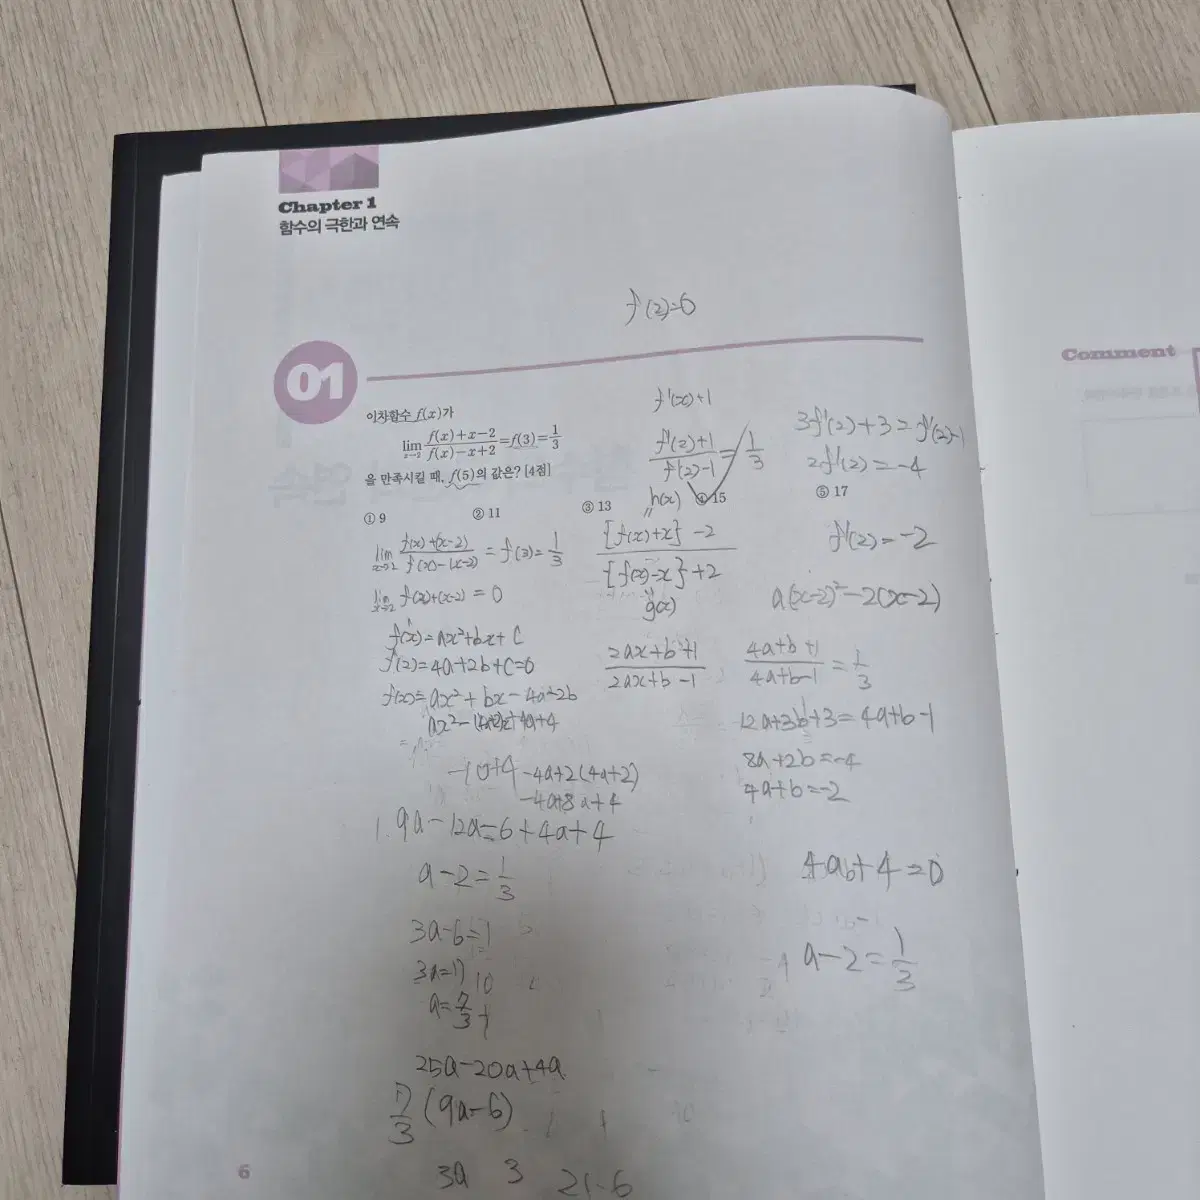 Chapter 1
함수의 극한과 연속
f'(2)=0
01
Comment
이차함수 f(x)가
lim x→2 f(x)+x-2 / f(x)-x+2 = f(3) = 1/3
을 만족시킬 때, f(5)의 값은? [4점]
① 9
② 11
③ 13
④ 15
⑤ 17
f'(x)+1
f'(2)+1 / f'(2)-1 = 1/3
3f'(2)+3=f'(2)-1
2f'(2)=-4
f'(2)=-2
a(x-2)²-2(x-2)
lim x→2 f(x)+(x-2) / f(x)-(x-2) = f(3) = 1/3
lim x→2 f(x)+(x-2) = 0
h(x)
{f(x)+x}-2 / {f(x)-x}+2
g(x)
f(x)=ax²+bx+c
f(2)=4a+2b+c=0
f(x)=ax²+bx-4a-2b
2ax+b+1 / 2ax+b-1
4a+b+1 / 4a+b-1 = 1/3
12a+3b+3=4a+b-1
8a+2b=-4
4a+b=-2
-4a+2(4a+2)
-4a+8a+4
9a-12a-6+4a+4
a-2=1/3
3a-6=1
3a=17
10
a=7/3
25a-20a+4a
7/3 (9a-6)
3a 3 21-6
a-2=1/3
6